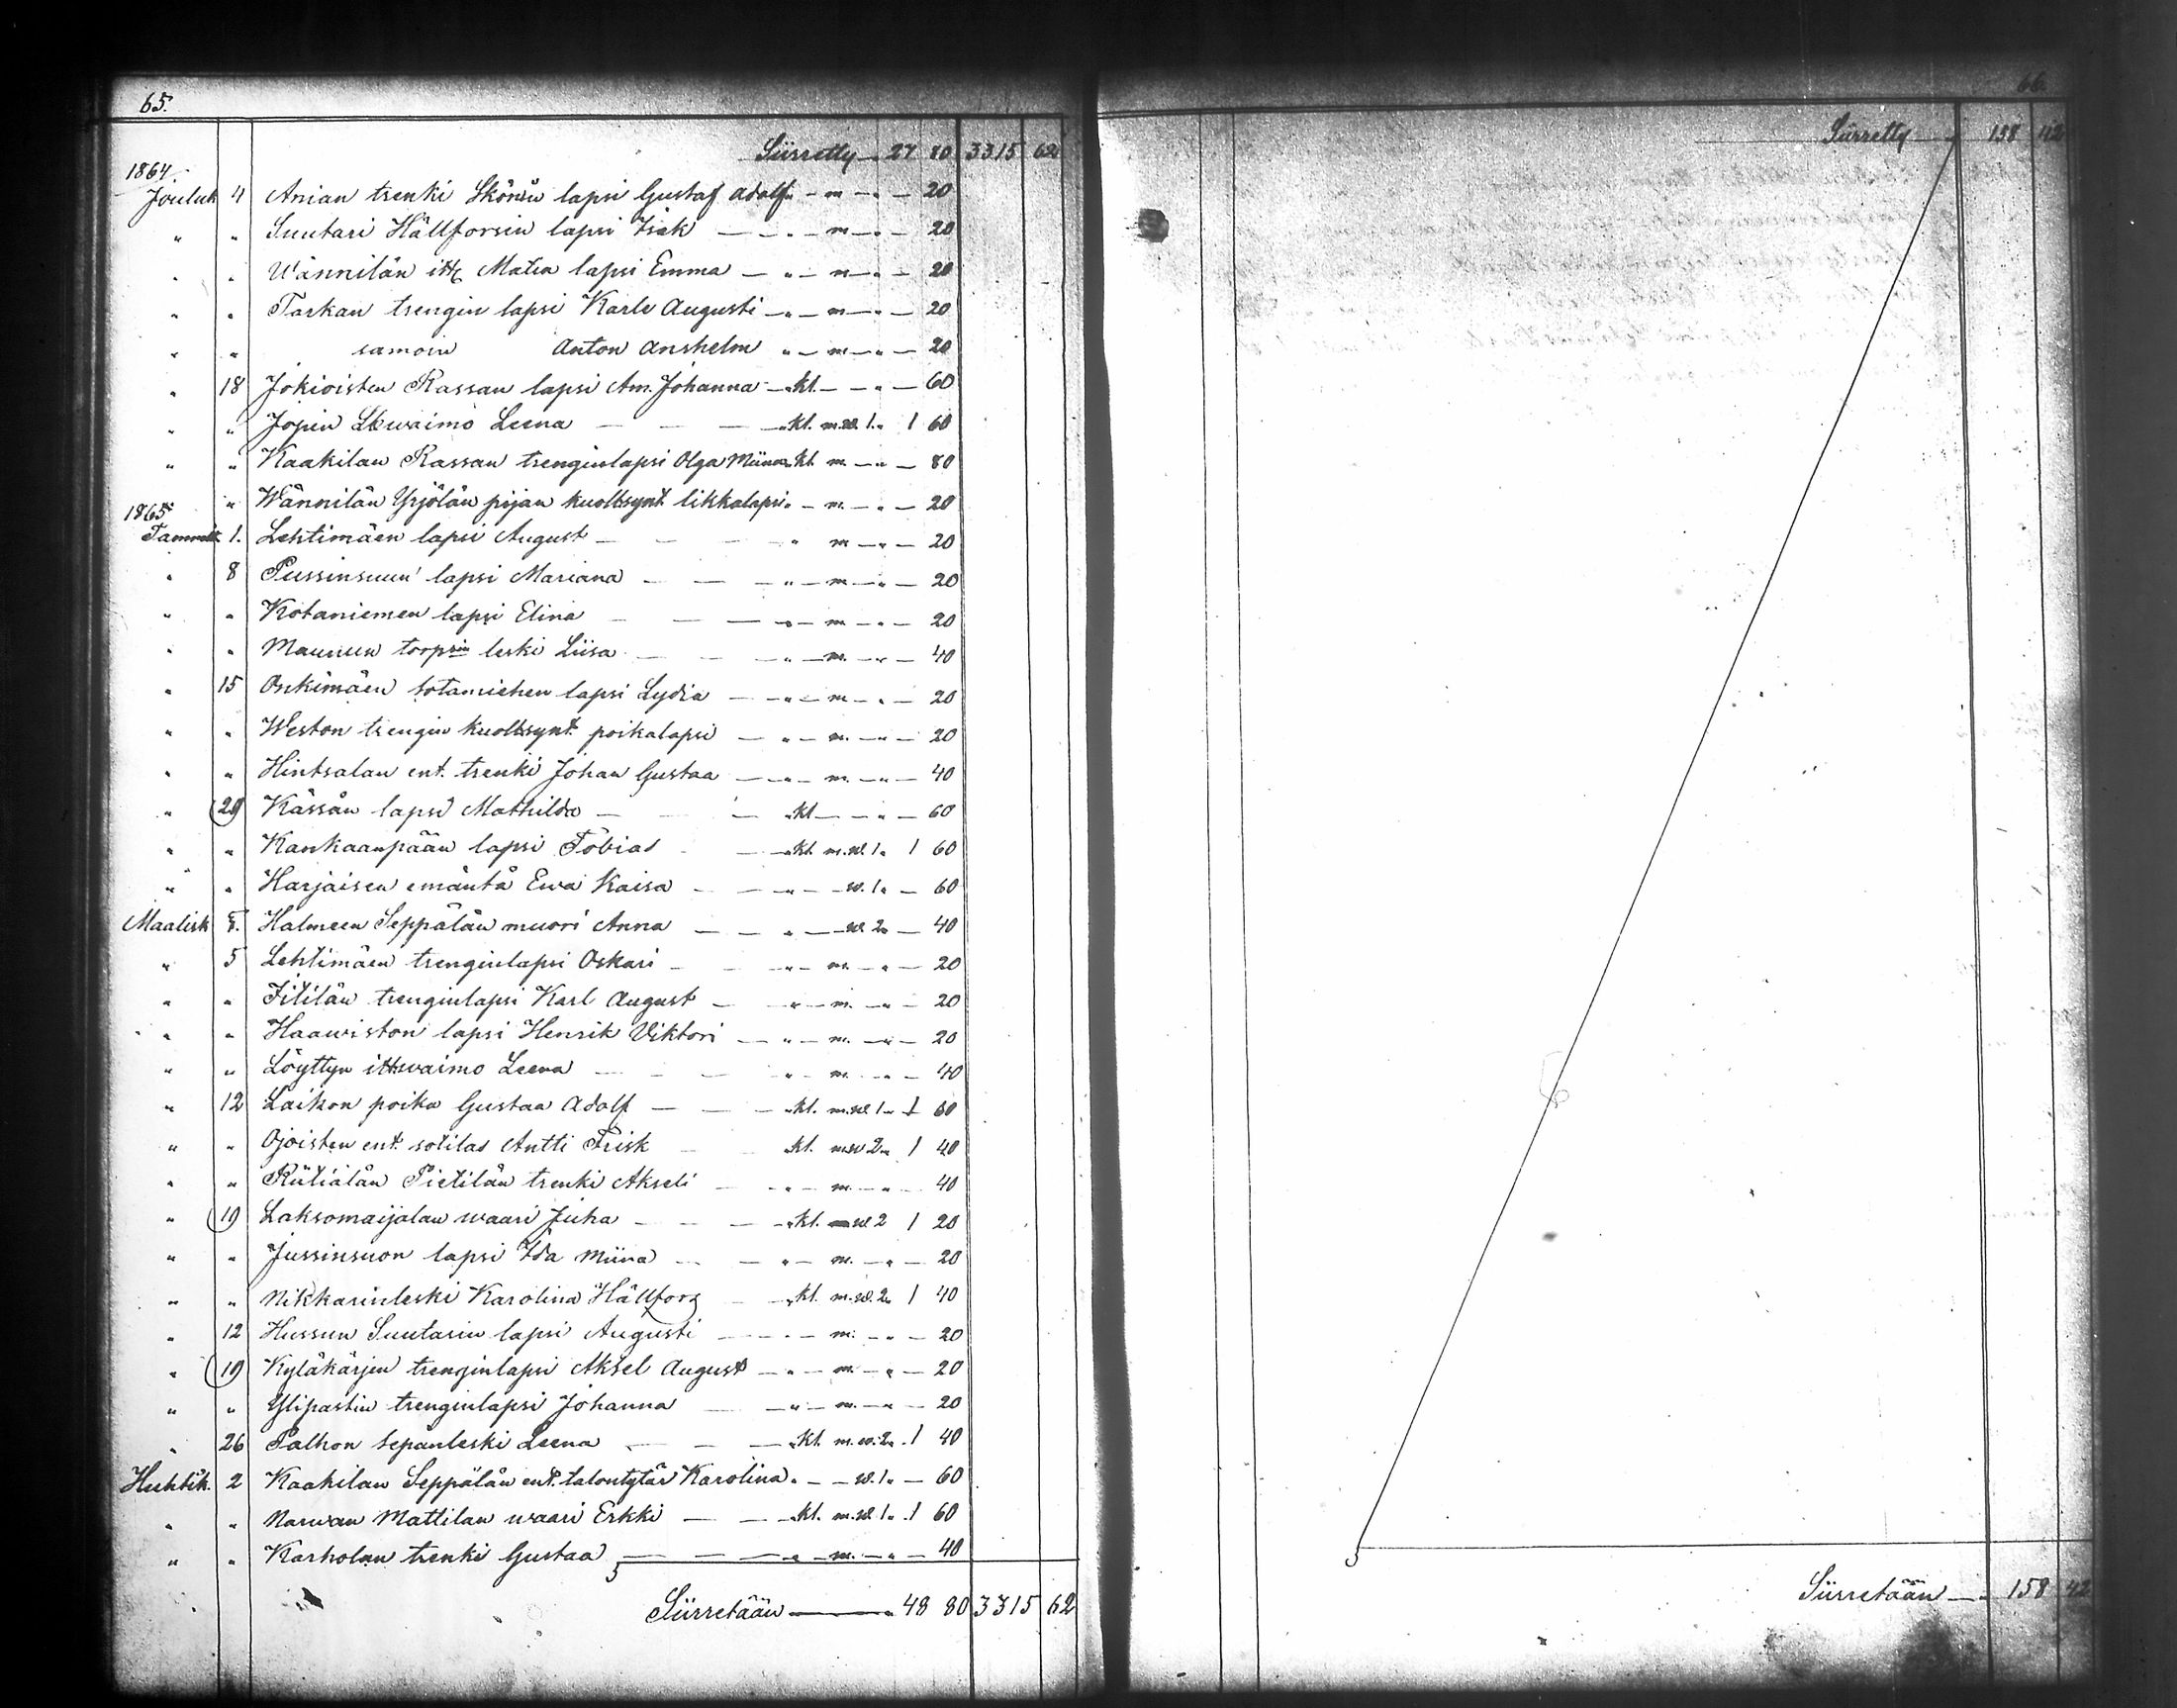 65.
Siirretty — 27 80 3315 62
1864.
Jouluk 4 Anian trenki Skönin lapsi Gustaf Adolf „ — m — „ — 20
„ „ Suutari Hällforsin lapsi Isak — — „ — m — „ — 20
„ „ Wännilän itt Matin lapsi Emma — „ — m — „ — 20
„ „ Tarkan trengin lapsi Karle Augusti — „ — m — „ — 20
„ „ samoin Anton Anshelm „ — m — „ — 20
„ 18 Jokioisten Rassan lapsi Am. Johanna — „ kl. — — „ — 60
„ „ Jopin waimo Leena — — — „ kl. m. w. 1. „ 1 60
„ „ Kaakilan Rassan trenginlapsi Olga Miina „ kl. m. — „ — 80
„ „ Wännilän Yrjölän pijan kuoltsynt. likkalapsi „ — m. — „ — 20
1865
Tammik. 1. Lehtimäen lapsi August — — — „ m — „ — 20
„ 8 Pussinsuun lapsi Mariana — — — „ — m — „ — 20
„ „ Kotaniemen lapsi Elina — — — „ — m — „ — 20
„ „ Maunun torpsin leski Liisa — — — „ — m. — „ — 40
„ 15 Onkimäen sotamiehen lapsi Lydia — „ — m — „ — 20
„ „ Weston trengin kuoltsynt. poikalapsi — „ — m. — „ — 20
„ „ Hintsalan ent. trenki Johan Gustaa — „ — m. — „ — 40
„ (29) Kässän lapsi Mathilda — — „ kl — — „ — 60
„ „ Kankaanpään lapsi Tobias — „ kl. m. w. 1 „ 1 60
„ „ Harjaisen emäntä Ewa Kaisa — — „ — w. 1 „ — 60
Maalisk 5. Halmeen Seppälän muori Anna — — „ — w. 2 „ — 40
„ 5 Lehtimäen trenginlapsi Oskari — — „ — m. — „ — 20
„ „ Iitilän trenginlapsi Karl August — „ — m. — „ — 20
„ „ Haawiston lapsi Henrik Viktori — „ — m. — „ — 20
„ „ Löyttyn ittwaimo Leena — — — „ — m. — „ — 40
„ 12 Laikon poika Gustaa Adolf — — — „ kl. m. w. 1 „ 1 60
„ „ Ojoisten ent. sotilas Antti Frisk — „ kl. m. w 2 „ 1 40
„ „ Rütiälän Pietilän trenki Akseli — „ — m. — „ — 40
„ (19) Laksomaijalan waari Juha — — — „ kl. — w. 2 1 20
„ „ Jussinsuon lapsi Ida Miina — — „ — m. — „ — 20
„ „ Nikkarinleski Karolina Hällfors — „ kl. m. w. 2 „ 1 40
„ 12 Hussun Suutarin lapsi Augusti — — „ — m. — „ — 20
„ (19) Kyläkärjen trenginlapsi Aksel August — „ — m. — „ — 20
„ „ Ylipastin trenginlapsi Johanna — — „ — m. — „ — 20
„ 26 Talkon sepänleski Leena — — — „ kl. m. w. 2 „ 1 40
Huhtik. 2 Kaakilan Seppälän ent. talontytär Karolina „ — — w. 1 „ — 60
„ „ Narwan Mattilan waari Erkki — — „ kl. m. w. 1 „ 1 60
„ „ Karholan trenki Gustaa — — — „ — m. — „ — 40
Siirretään — 48 80 3315 62
66.
Siirretty — 158 42
Siirretään — 158 42